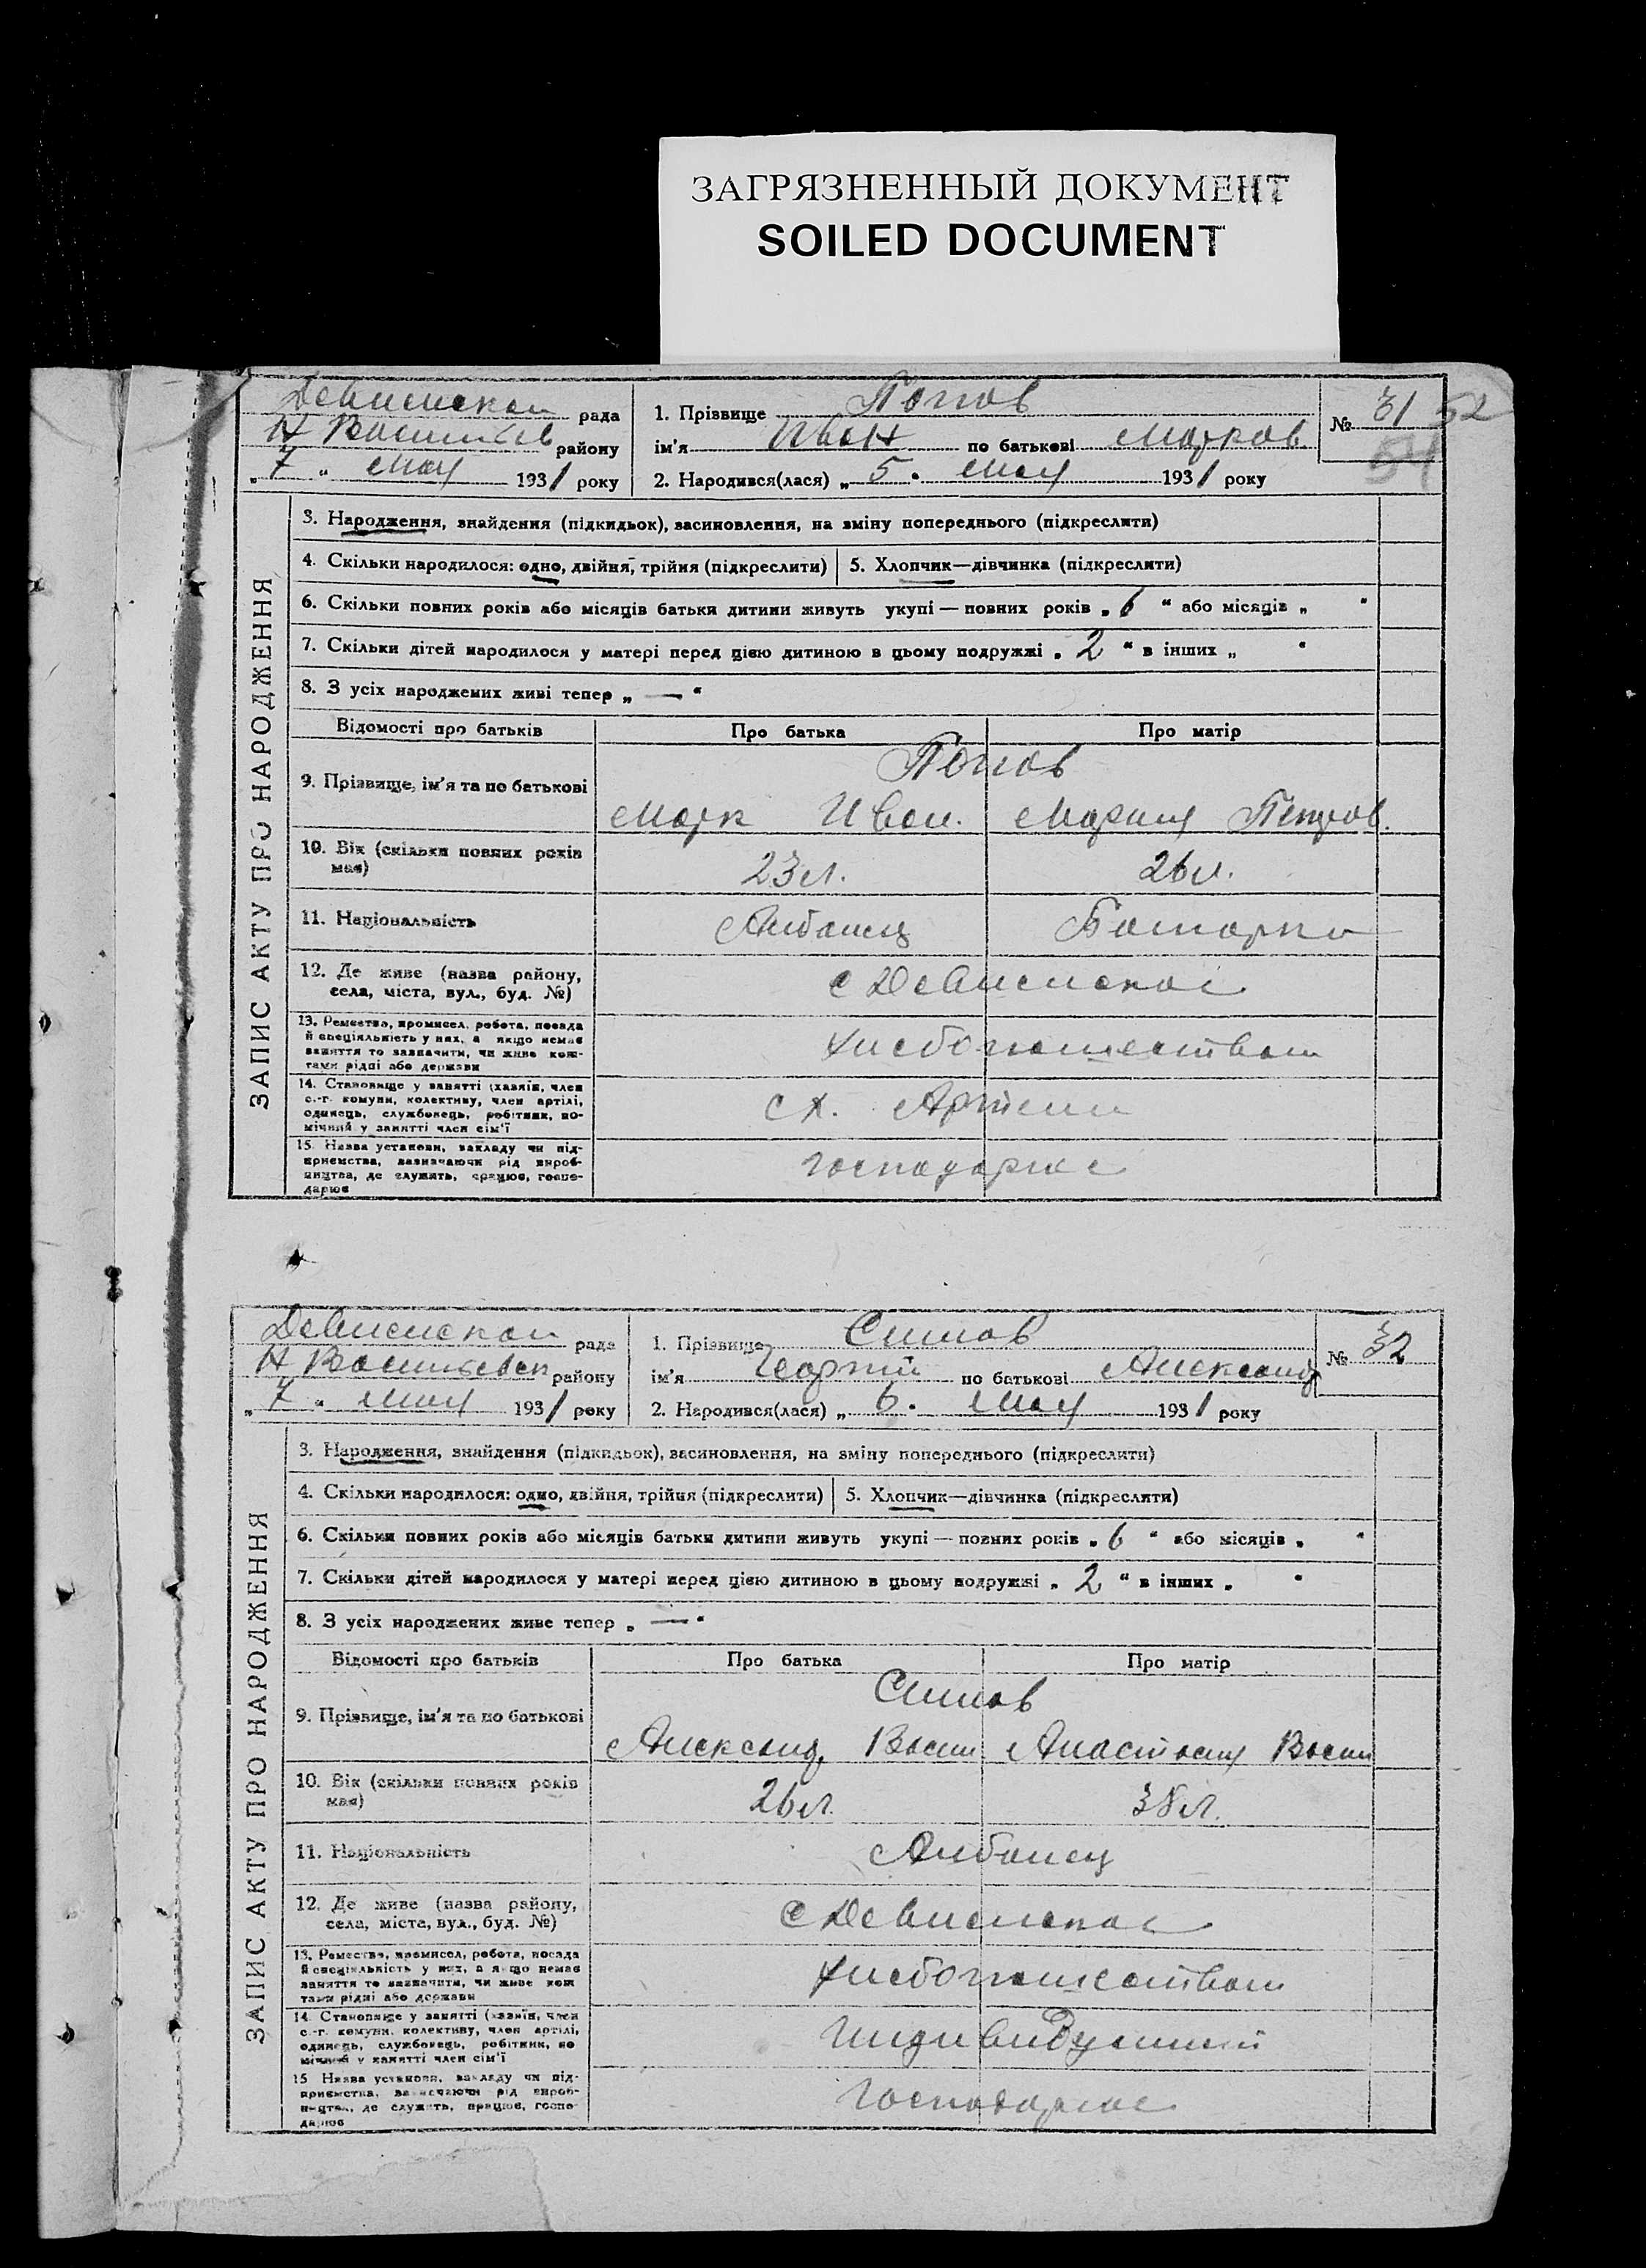 ЗАГРЯЗНЕННЫЙ ДОКУМЕНТ
SOILED DOCUMENT
Девненской рада
Н Васильев району
„7“ мая 1931 року
1. Прізвище Попов
ім'я Иван по батькові Марков.
2. Народився(лася) „5. мая 1931 року
№ 31 52
54
ЗАПИС АКТУ ПРО НАРОДЖЕННЯ
3. Народження, знайдення (підкидьок), засиновлення, на зміну попереднього (підкреслити)
4. Скільки народилося: одно, двійня, трійня (підкреслити) 5. Хлопчик—дівчинка (підкреслити)
6. Скільки повних років або місяців батьки дитини живуть укупі — повних років „6“ або місяців „ “
7. Скільки дітей народилося у матері перед цією дитиною в цьому подружжі „2“ в інших „ “
8. З усіх народжених живі тепер „—“
Відомості про батьків Про батька Про матір
9. Прізвище, ім'я та по батькові
Попов
Марк Иван. Мария Петров.
10. Вік (скільки повних років має)
23 л. 26 л.
11. Національність Албанец Болгарка
12. Де живе (назва району,
села, міста, вул., буд. №)
с Девненское
13. Ремество, промисел, робота, посада
й спеціяльність у них, а якщо немає
заняття то зазначити, чи живе кош-
тами рідні або держави
хлебопашеством
14. Становище у занятті (хазяїн, член
с.-г. комуни, колективу, член артілі,
одинець, службовець, робітник, по-
мічний у занятті член сім'ї
с х. Артели
15. Назва установи, закладу чи під-
приємства, зазначаючи рід вироб-
ництва, де служить, працює, госпо-
дарює
господарює
Девненской рада
Н Васильевск району
„7“ мая 1931 року
1. Прізвище Симов
ім'я Георгий по батькові Александ
2. Народився(лася) „6. мая 1931 року
№ 32
ЗАПИС АКТУ ПРО НАРОДЖЕННЯ
3. Народження, знайдення (підкидьок), засиновлення, на зміну попереднього (підкреслити)
4. Скільки народилося: одно, двійня, трійня (підкреслити) 5. Хлопчик—дівчинка (підкреслити)
6. Скільки повних років або місяців батьки дитини живуть укупі — повних років „6“ або місяців „ “
7. Скільки дітей народилося у матері перед цією дитиною в цьому подружжі „2“ в інших „ “
8. З усіх народжених живе тепер „—“
Відомості про батьків Про батька Про матір
9. Прізвище, ім'я та по батькові
Симов
Александ. Васил Анастасия Васил
10. Вік (скільки повних років має)
26 л. 38 л.
11. Національність Албанец
12. Де живе (назва району,
села, міста, вул., буд. №)
с Девненское
13. Ремество, промисел, робота, посада
й спеціяльність у них, а якщо немає
заняття то зазначити, чи живе кош
тами рідні або держави
хлебопашеством
14. Становище у занятті (хазяїн, член
с.-г. комуни, колективу, член артілі,
одинець, службовець, робітник, по
мічний у занятті член сім'ї
Индивидуальный
15 Назва установи, закладу чи під-
приємства, зазначаючи рід вироб-
ництва, де служить, працює, госпо-
дарює
Господарює